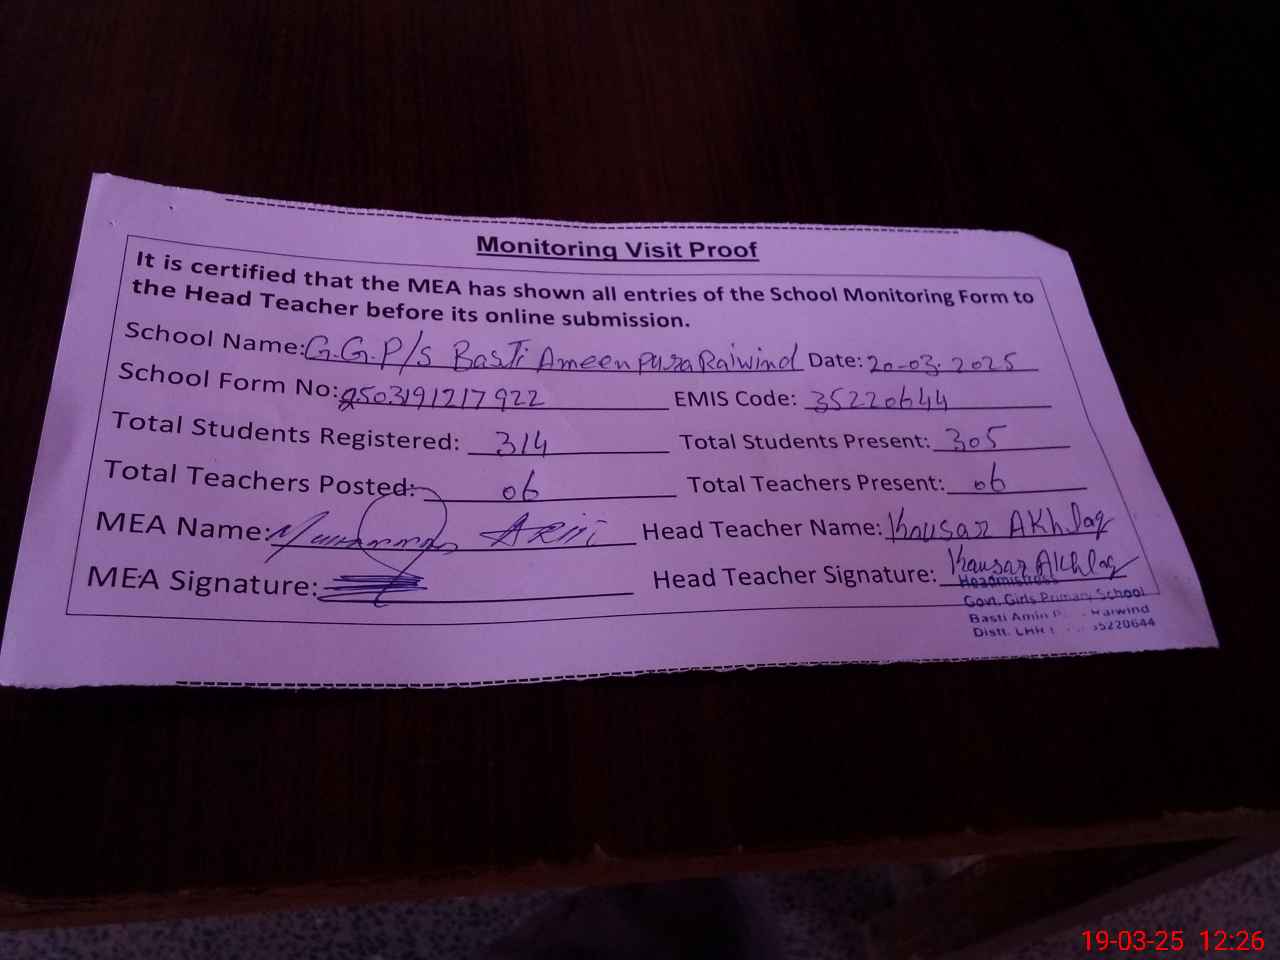 Monitoring Visit Proof
It is certified that the MEA has shown all entries of the School Monitoring Form to
the Head Teacher before its online submission.
School Name: G.G.P/S Basti Ameen pura Raiwind Date: 20-03-2025
School Form No: 2503191217922 EMIS Code: 35220644
Total Students Registered: 314 Total Students Present: 305
Total Teachers Posted: 06 Total Teachers Present: 06
MEA Name: Head Teacher Name: Kausar Akhlaq
MEA Signature: Head Teacher Signature: Kausar Akhlaq
Headmistress
Govt. Girls Primary School
Basti Amin Raiwind
Distt. 35220644
19-03-25 12:26